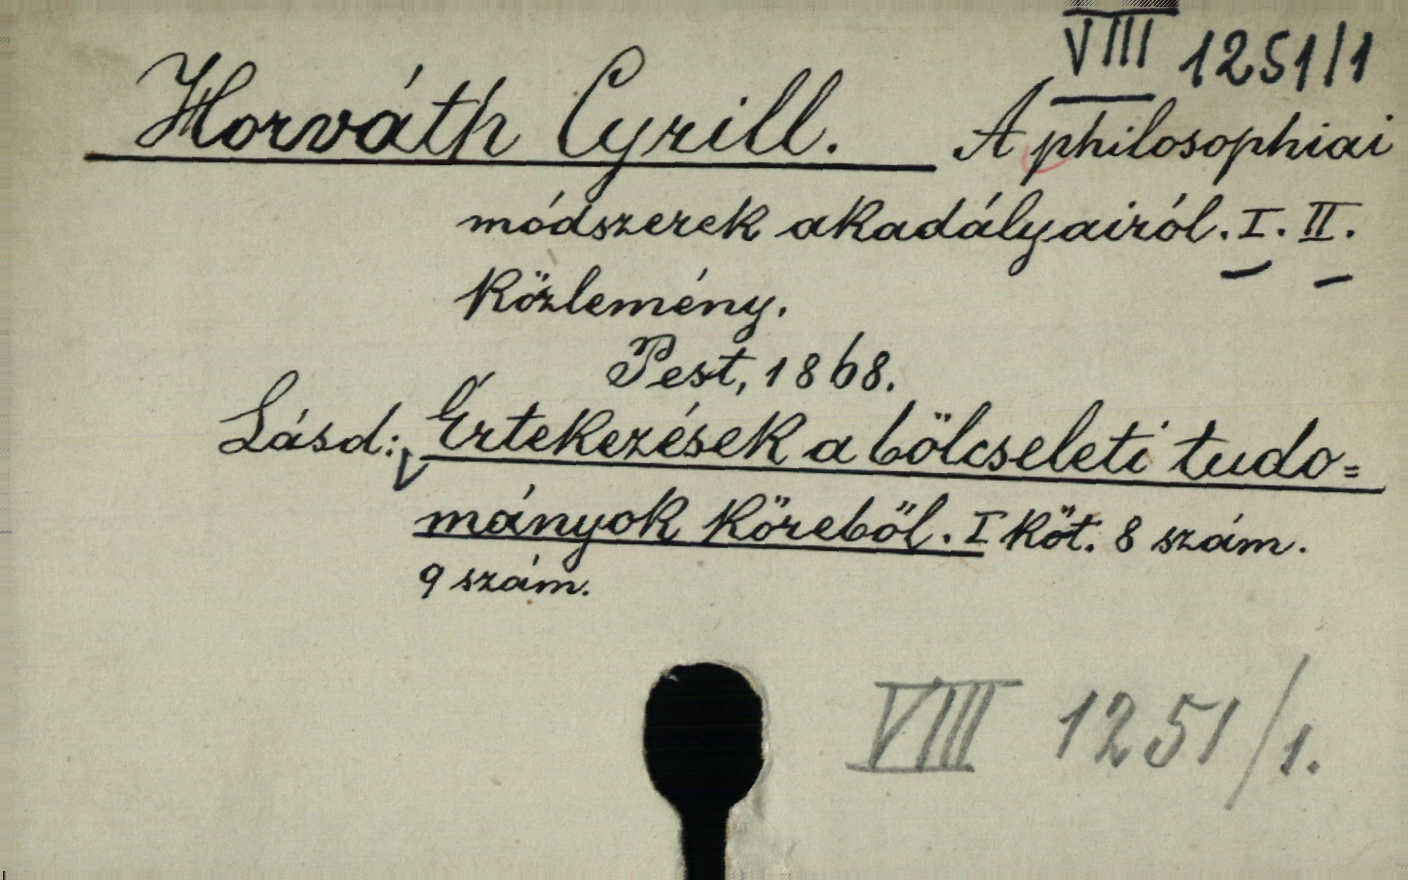 VIII 1251/1
Horváth Cyrill. A philosophiai
módszerek akadályairól. I. II.
Közlemény.
Pest, 1868.
Lásd: Értekezések a bölcseleti tudo=
mányok köréből. I Köt. 8 szám.
9 szám.
VIII 1251/1.